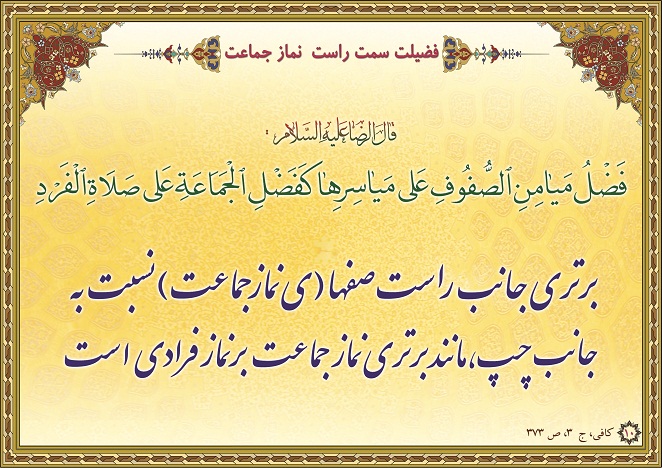 فضیلت سمت راست نماز جماعت
قال الرضا علیه السلام:
فَضْلُ مَيَامِنِ ٱلصُّفُوفِ عَلَى مَيَاسِرِهَا كَفَضْلِ ٱلْجَمَاعَةِ عَلَى صَلَاةِ ٱلْفَرْدِ
برتری جانب راست صفها (ی نماز جماعت) نسبت به
جانب چپ، مانند برتری نماز جماعت بر نماز فرادی است
۱۰ کافی، ج ۳، ص ۳۷۳